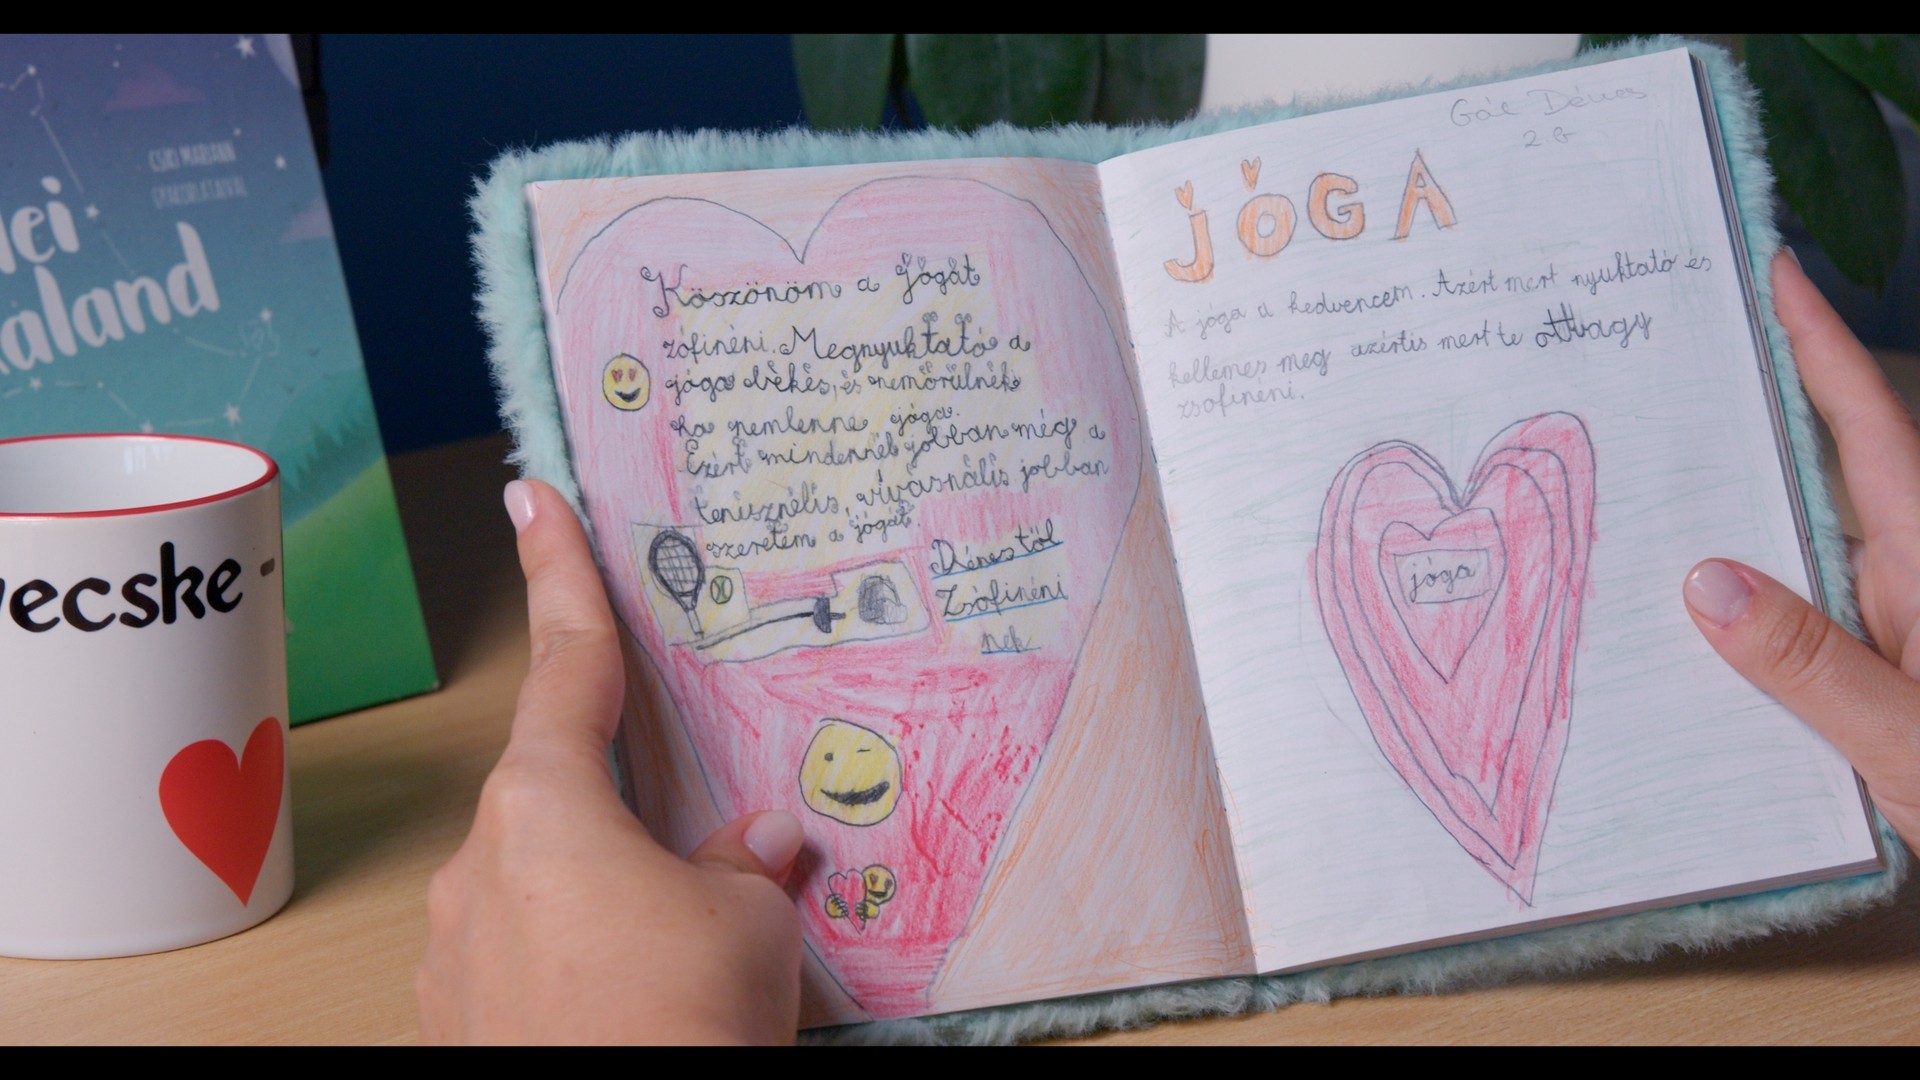 CSIKI MARIANN
lei
kaland
vecske -
Köszönöm a jógát
zófinéni. Megnyuktató a
jóga békés, és nemörülnék
ha nemlenne jóga.
Ezért mindennél jobban még a
tenisznélis, vívásnális jobban
szeretem a jógát.
Dénestöl
Zsófinéni
nek
Gál Dénes
2 b
JÓGA
A jóga a kedvencem. Azért mert nyuktató és
kellemes meg azértis mert te ottvagy
zsofinéni.
jóga